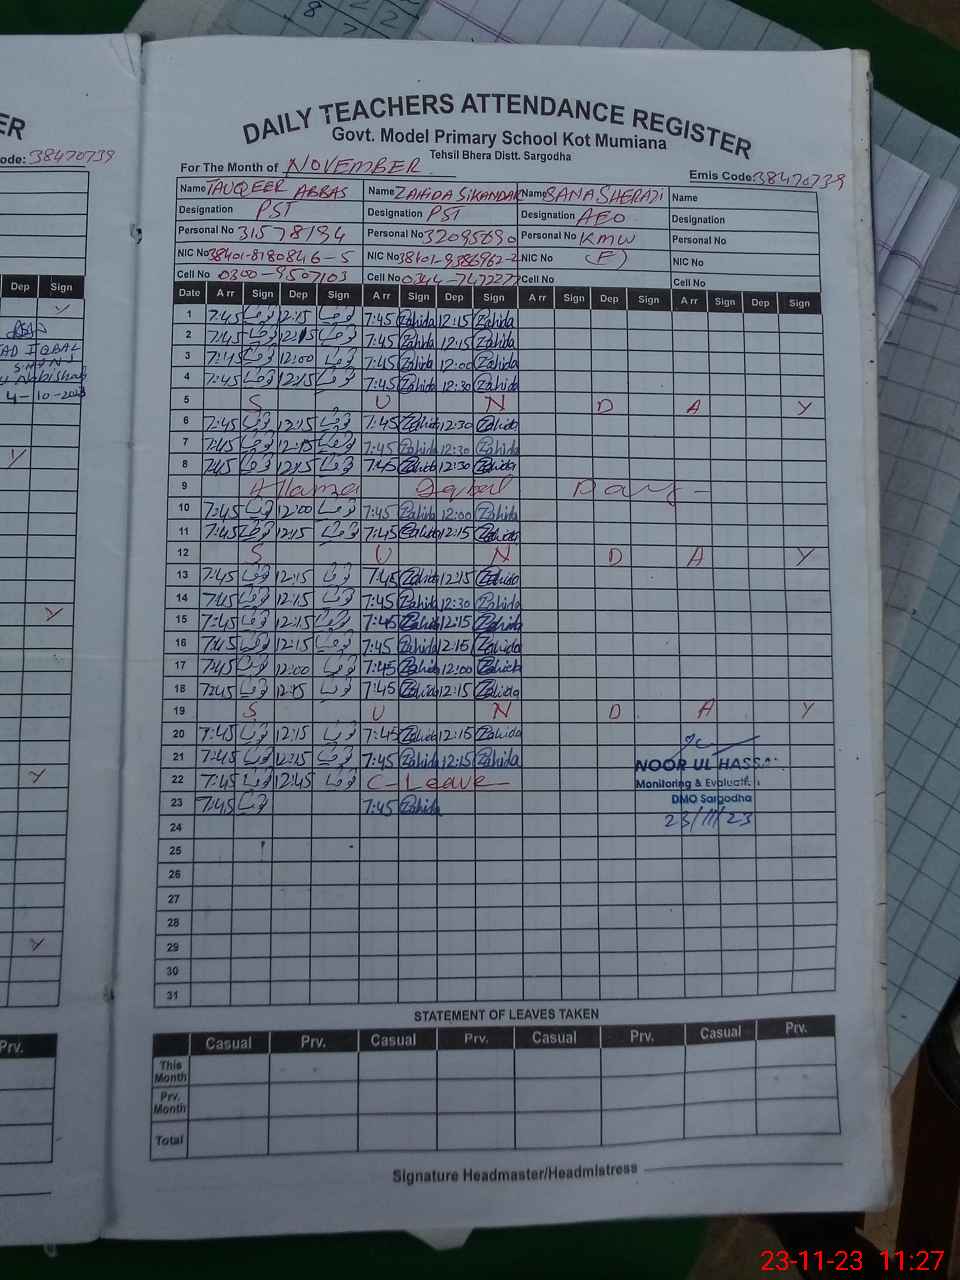 DAILY TEACHERS ATTENDANCE REGISTER
Govt. Model Primary School Kot Mumiana
Tehsil Bhera Distt. Sargodha
For The Month of NOVEMBER Emis Code: 38470739
Name TAUQEER ABBAS Name ZAHIDA SIKANDAR Name SANA SHERAZI Name
Designation PST Designation PST Designation AEO Designation
Personal No 31578194 Personal No 32095690 Personal No KMW Personal No
NIC No 38401-8180846-5 NIC No 38401-9386962-2 NIC No (F) NIC No
Cell No 0300-9507103 Cell No 0344-7472277 Cell No Cell No
Date A rr Sign Dep Sign A rr Sign Dep Sign A rr Sign Dep Sign A rr Sign Dep Sign
1 7:45 12:15 7:45 Zahida 12:15 Zahida
2 7:45 12:15 7:45 Zahida 12:15 Zahida
3 7:45 12:00 7:45 Zahida 12:00 Zahida
4 7:45 12:15 7:45 Zahida 12:30 Zahida
5 S U N D A Y
6 7:45 12:15 7:45 Zahida 12:30 Zahida
7 7:45 12:15 7:45 Zahida 12:30 Zahida
8 7:45 12:15 7:45 Zahida 12:30 Zahida
9 Allama Iqbal Day -
10 7:45 12:00 7:45 Zahida 12:00 Zahida
11 7:45 12:15 7:45 Zahida 12:15 Zahida
12 S U N D A Y
13 7:45 12:15 7:45 Zahida 12:15 Zahida
14 7:45 12:15 7:45 Zahida 12:30 Zahida
15 7:45 12:15 7:45 Zahida 12:15 Zahida
16 7:45 12:15 7:45 Zahida 12:15 Zahida
17 7:45 12:00 7:45 Zahida 12:00 Zahida
18 7:45 12:15 7:45 Zahida 12:15 Zahida
19 S U N D A Y
20 7:45 12:15 7:45 Zahida 12:15 Zahida
21 7:45 12:15 7:45 Zahida 12:15 Zahida
22 7:45 12:45 C-Leave-
23 7:45 7:45 Zahida
NOOR UL HASSA
Monitoring & Evaluati
DMO Sargodha
23/11/23
24
25
26
27
28
29
30
31
STATEMENT OF LEAVES TAKEN
Casual Prv. Casual Prv. Casual Prv. Casual Prv.
This Month
Prv. Month
Total
Signature Headmaster/Headmistress
ER
Code: 38470739
Dep Sign
Y
AD IQBAL
4-10-2023
Y
Y
Y
Y
Prv.
23-11-23 11:27